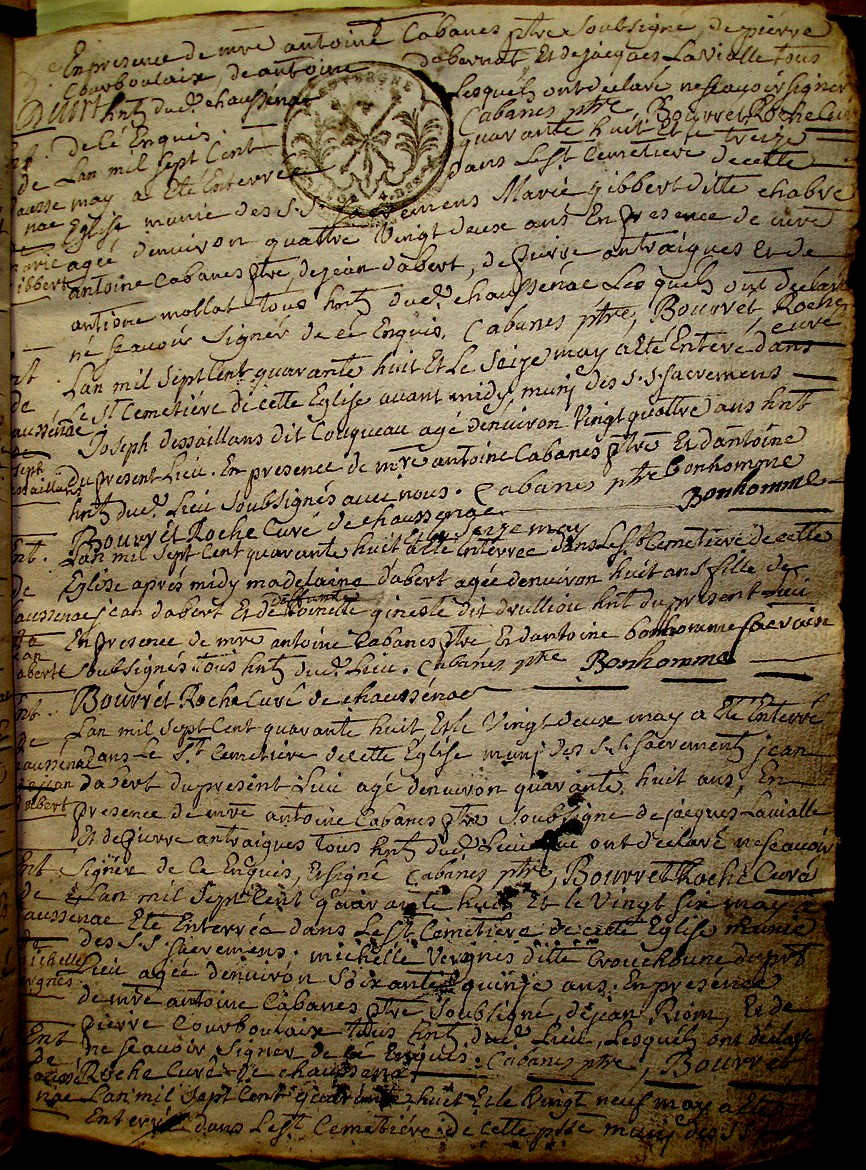 En presence de mre antoine Cabanes ptre soubsigne, de pierre
Courboulaix, de antoine dabernat Et de jacques Lavialle tous
hnts dud. chaussenac Lesquels ont declaré ne scavoir signer
de cé Enquis. Cabanes ptre Bourret Roche Curé
Lan mil sept Cent quarante huit Et le treize
may a Eté Enterrée dans Le st. Cemetiére de cette
Eglise munie des S.S. Sacremens Marie gibbert ditte chabre
agéé denviron quattre Vingt deux ans En presence de mre
antoine Cabanes ptre, de jean dabert, de pierre antraigues et de
antione mollat tous hnts dud. chaussenac Lesquels ont declaré
né scavoir Signer de cé Enquis. Cabanes ptre, Bourret Roche
Curé
Lan mil sept Cent quarante huit Et Le Seize may a eté Enteré dans
Le St Cemetiére de cette Eglise avant midy munj des S.S. Sacremens
Joseph dessaillans dit Couqueau agé denviron Vingt quattre ans hnt
du present Lieu. En presence de mre antoine Cabanes ptre Et dantoine
bonhomme
hnts dud. Lieu Soubsignés avec nous. Cabanes ptre Bonhomme
Bourret Roche Curé de chaussenac
Et le Seize may
Lan mil Sept Cent quarante huit a eté Enterrée dans Le st. Cemetiére de cette
Eglise aprés midy madelaine dabert agée denviron huit ans fille de
jean dabert Et de deffunte toinette gineste dit drulliou hnt du present Lieu
En presence de mre antoine Cabanes ptre Et dantoine bonhomme
soubsignés tous hnts dud. Lieu. Cabanes ptre Bonhomme
Bourret Roche Curé de chaussénac
Lan mil sept Cent quarante huit, Et le Vingt deux may a Eté Enterré
dans Le St. Cemetiére de cette Eglise munj des S.S. Sacrements jean
davert du present Lieu agé denviron quarante huit ans, En
presence de mre antoine Cabanes ptre Soubsigne de jacques Lavialle
Et de pierre antraigues tous hnts dud. Lieu que ont déclaré ne scavoir
Signer de Ce Enquis, Et signé Cabanes ptre, Bourret Roche Curé
Lan mil Sept Cent quarante huit Et le Vingt six may a
Eté Enterrée dans Le st. Cemetiére de cette Eglise munie
des S.S. Sacremens. michelle Vergnes ditte Crouchoune du prst
Lieu agée denviron Soixante quinze ans. En presence
de mre antoine Cabanes ptre Soubsigné, de jean Riom, Et de
pierre Courboulaix tous hnts dud. Lieu, Lesquels ont déclaré
ne scavoir Signer de cé Enquis. Cabanes ptre, Bourret
Roche Curé de chaussenac
Lan mil Sept Cent quarante huit Et le Vingt neuf may a Eté
Enterré dans Le st. Cemetiére de cette munj des S.S.